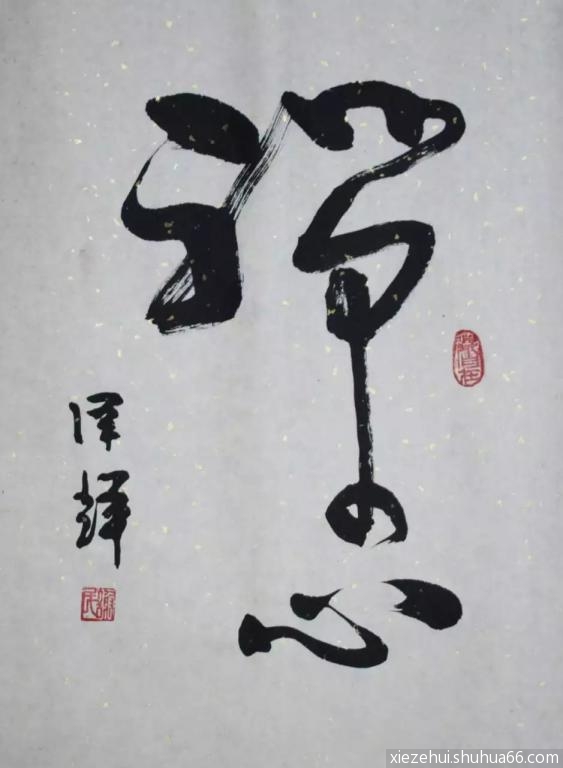 禅の心
泽輝
xiezehui.shuhua66.com